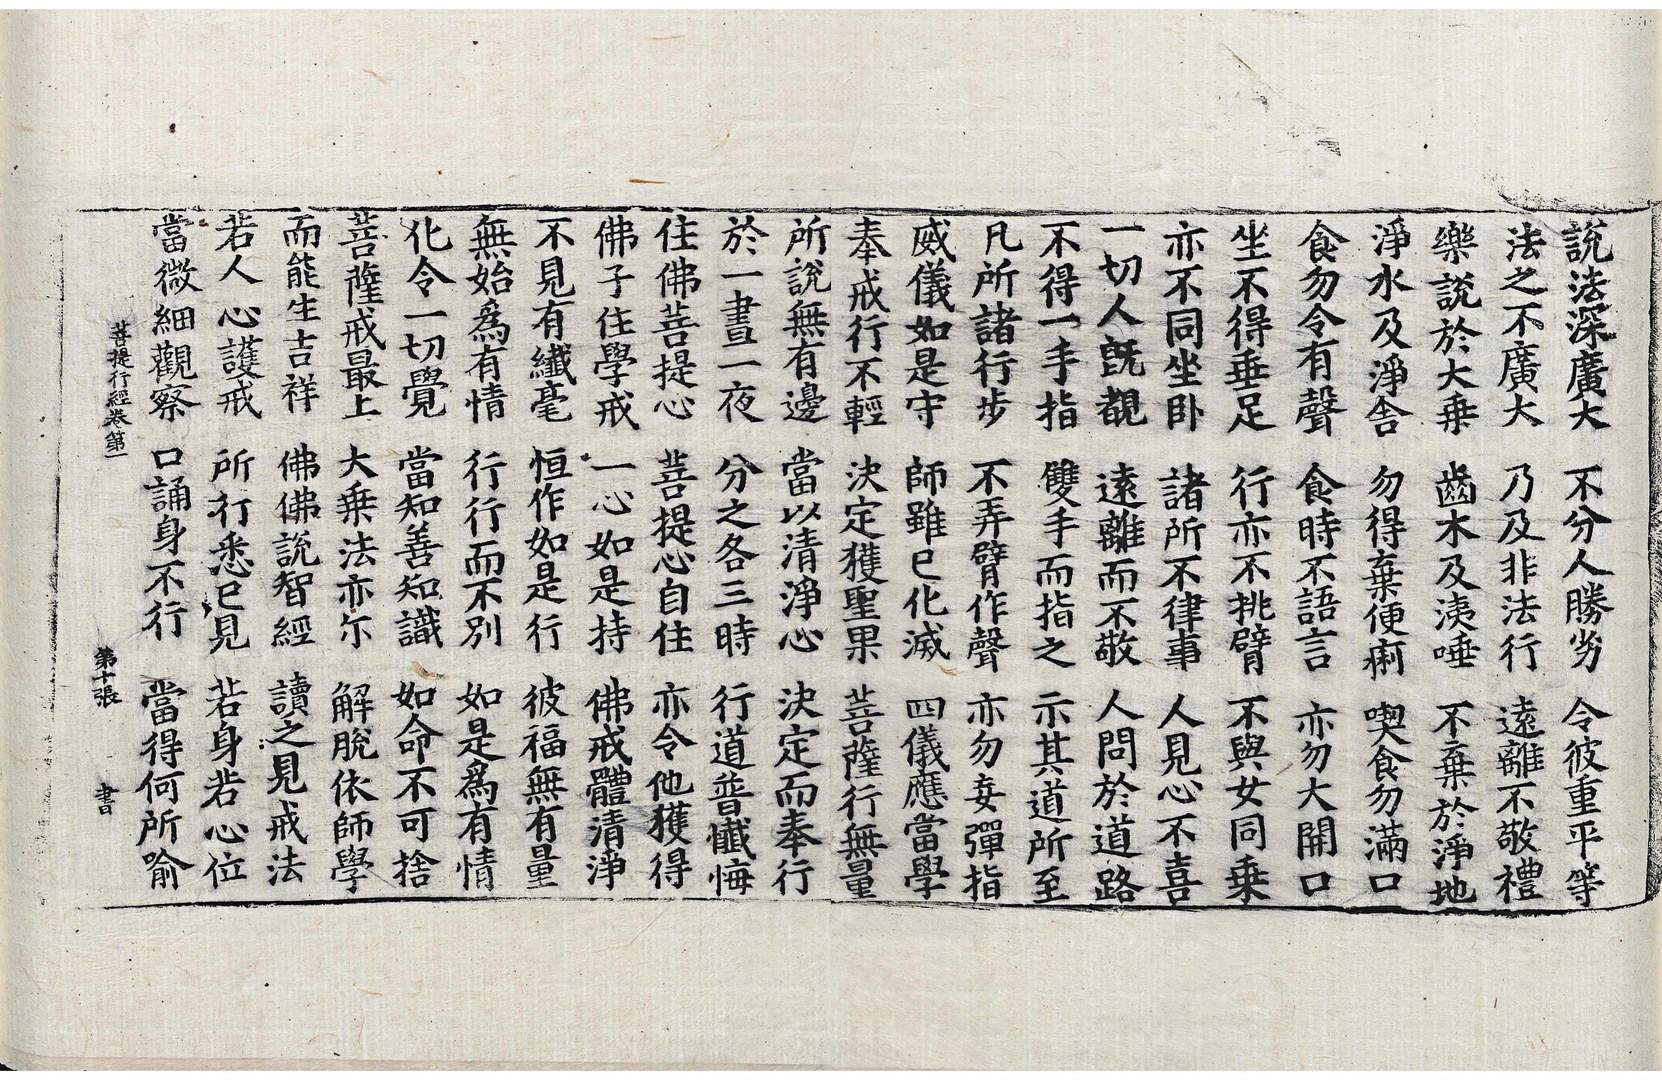 說法深廣大 不分人勝劣 令彼重平等
法之不廣大 乃及非法行 遠離不敬禮
樂說於大乗 齒木及洟唾 不棄於淨地
淨水及淨舍 勿得棄便痢 喫食勿滿口
食勿令有聲 食時不語言 亦勿大開口
坐不得垂足 行亦不挑臂 不與女同乗
亦不同坐卧 諸所不律事 人見心不喜
一切人旣覩 遠離而不敬 人問於道路
不得一手指 雙手而指之 示其道所至
凡所諸行步 不弄臂作聲 亦勿妄彈指
威儀如是守 師雖已化滅 四儀應當學
奉戒行不輕 決定獲聖果 菩薩行無量
所說無有邊 當以清淨心 決定而奉行
於一晝一夜 分之各三時 行道普懺悔
住佛菩提心 菩提心自住 亦令他獲得
佛子住學戒 一心如是持 佛戒體清淨
不見有纖毫 恒作如是行 彼福無有量
無始爲有情 行行而不別 如是爲有情
化令一切覺 當知善知識 如命不可捨
菩薩戒最上 大乗法亦尓 解脫依師學
而能生吉祥 佛佛說智經 讀之見戒法
若人心護戒 所行悉已見 若身若心位
當微細觀察 口誦身不行 當得何所喻
菩提行經卷第一 第十張 書